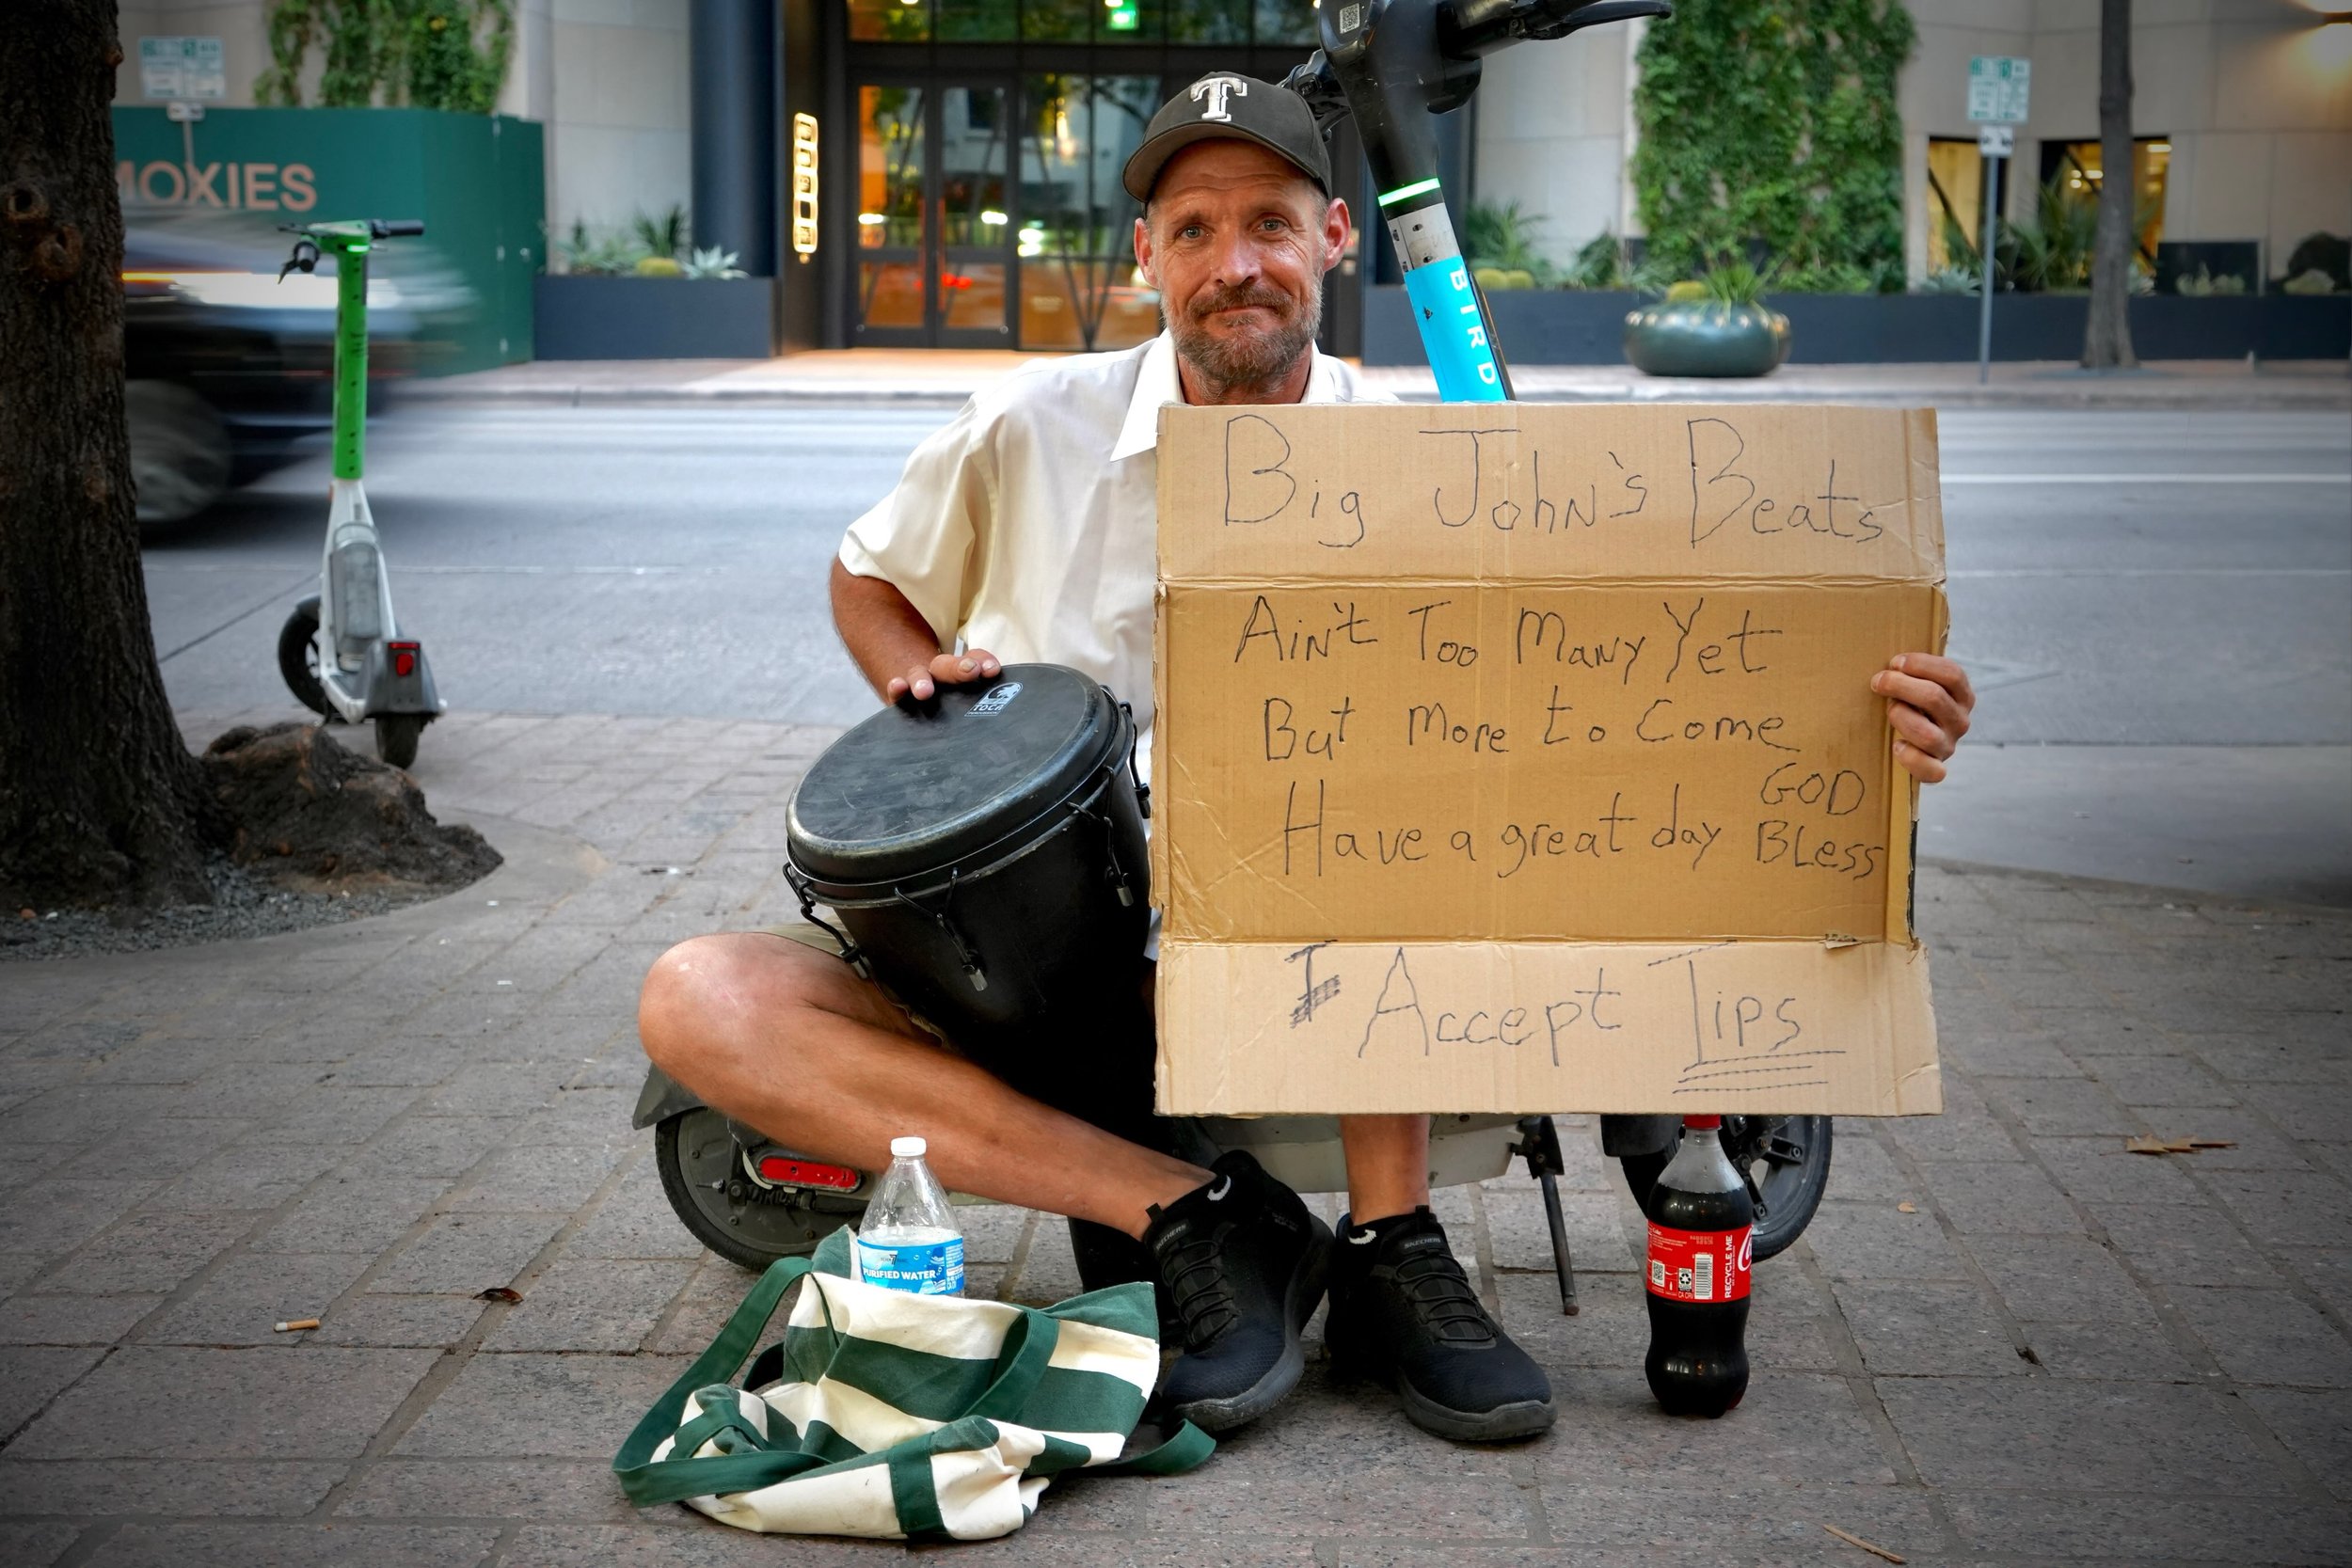 MOXIES
T
BIRD
Big John's Beats
Ain't Too Many Yet
But More to Come
Have a great day GOD
BLess
I Accept Tips
TOCA
PURIFIED WATER
SKECHERS
SKECHERS
RECYCLE ME